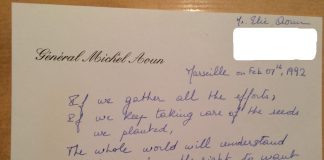 M. Elie Aoun
Général Michel Aoun
Marseille on Feb 01st, 1992
If we gather all the efforts,
If we keep taking care of the seeds
we planted,
The whole world will understand
the right to want